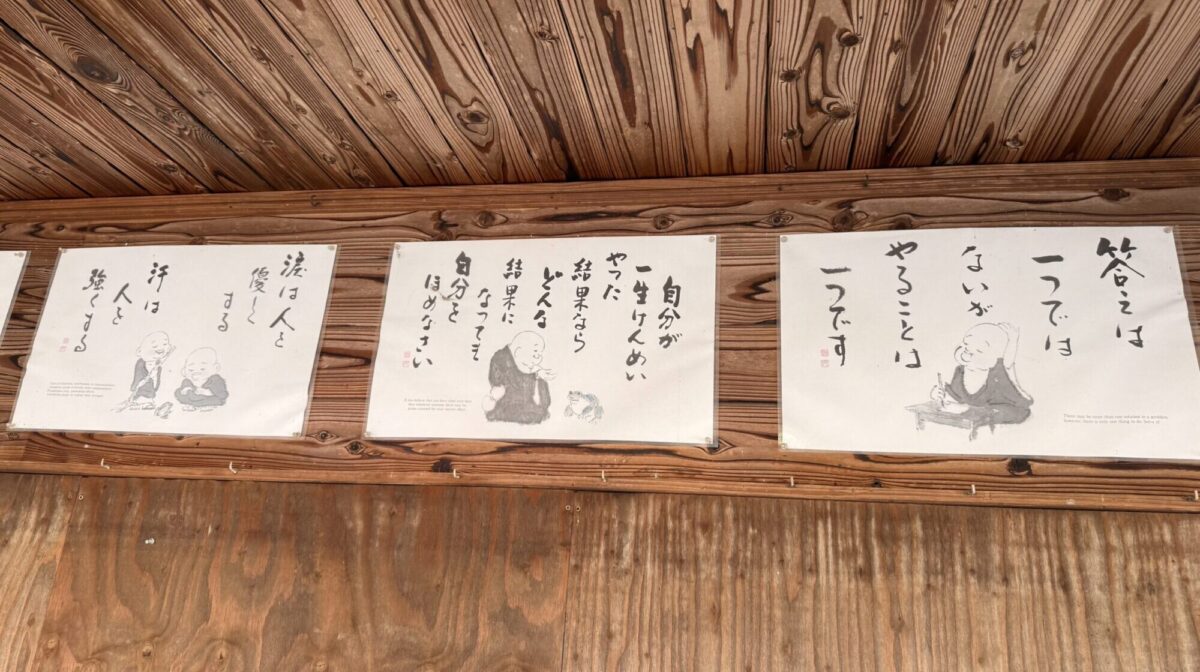 答えは
一つでは
ないが
やることは
一つです
自分が
一生けんめい
やった
結果なら
どんな
結果に
なっても
自分を
ほめなさい
涙は人を
優しく
する
汗は
人を
強くする